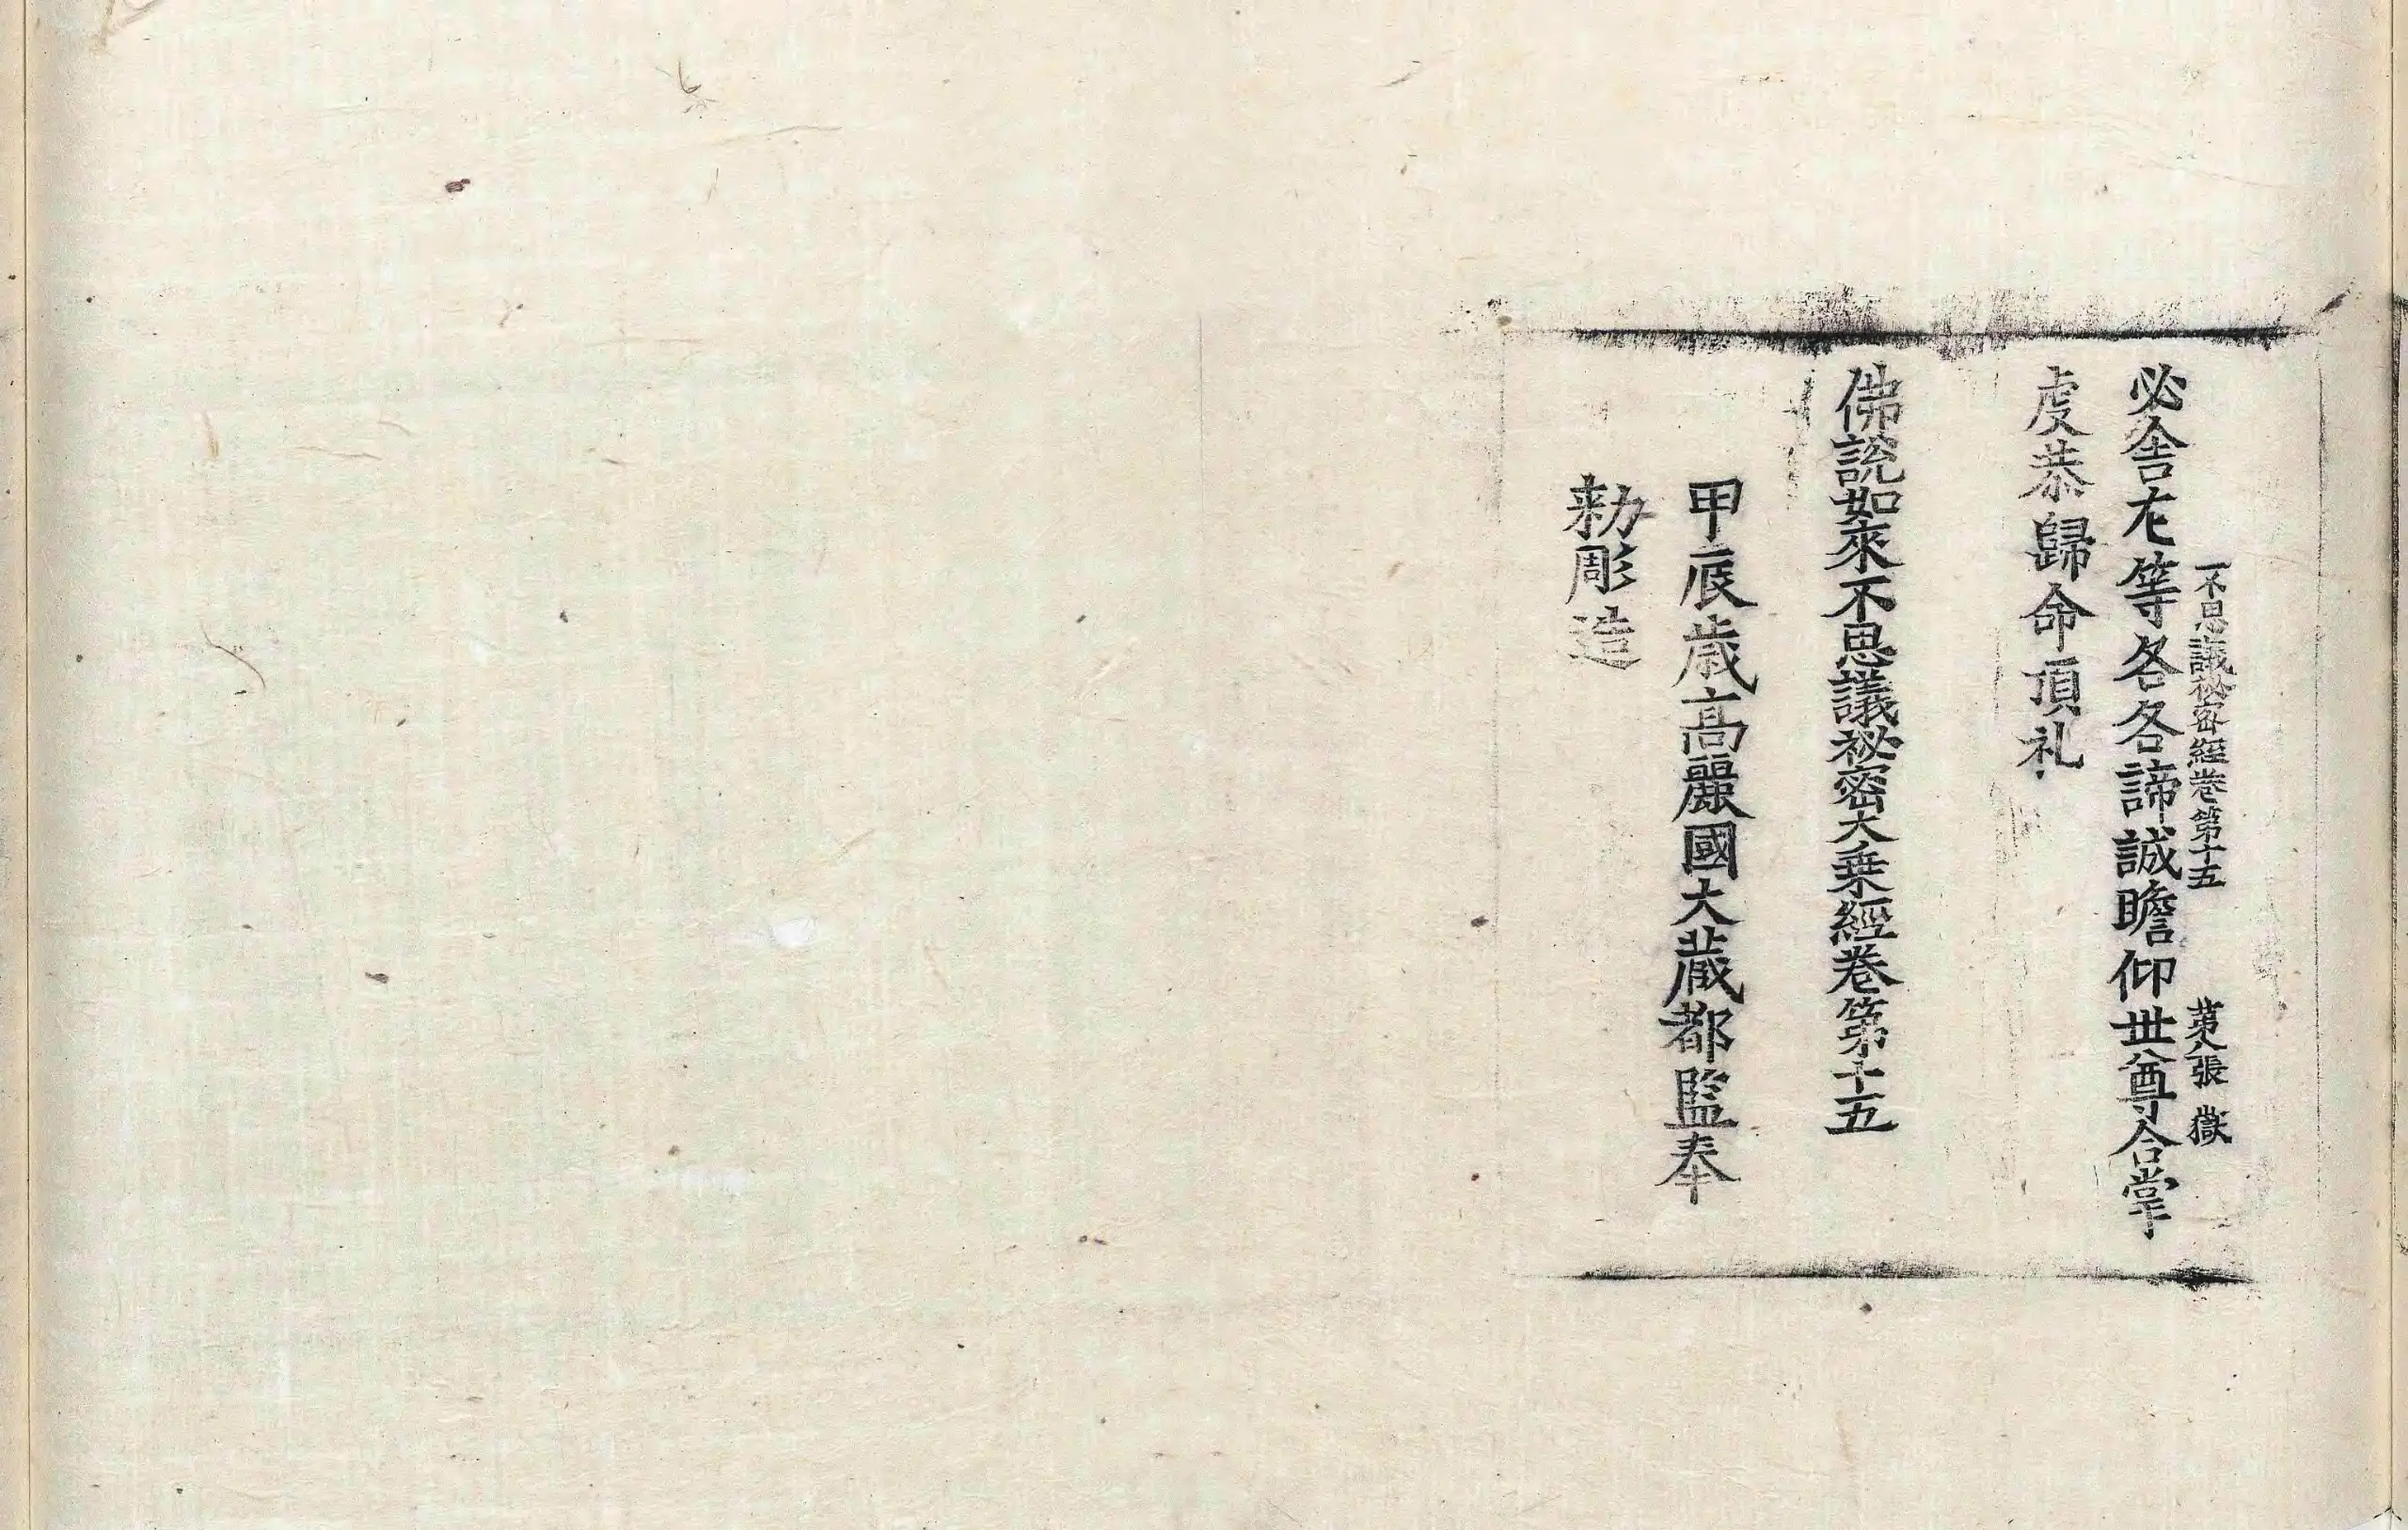 不思議秘密經卷第十五 第八張 獄
必舍左等各各諦誠瞻仰世尊合掌
虔恭歸命頂礼
佛說如來不思議祕密大乗經卷第十五
甲辰歲高麗國大藏都監奉
勅彫造